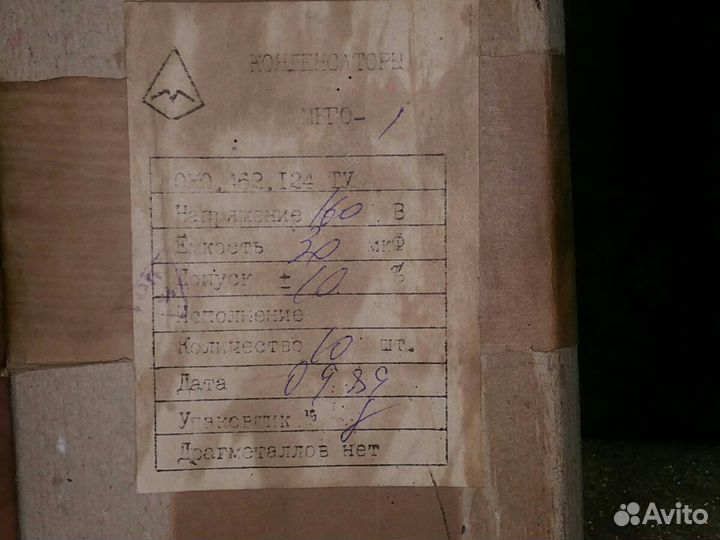 КОНДЕНСАТОРЫ
МБГО-1
ОЖО.462.124 ТУ
Напряжение 160 В
Емкость 30 мкФ
Допуск ± 10 %
Исполнение
Количество 10 шт.
Дата 09 89
Упаковщик
Драгметаллов нет
Avito